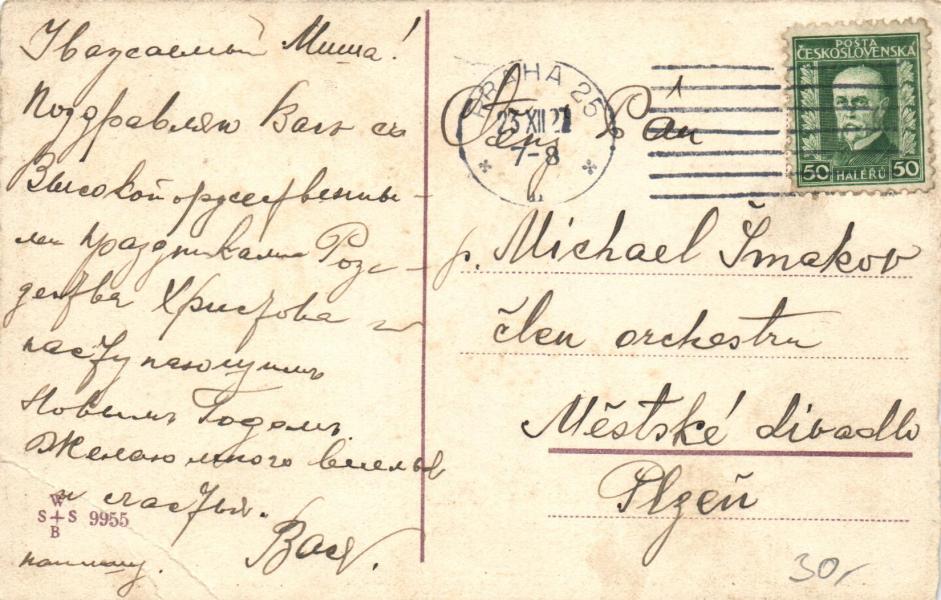 Уважаемый Миша!
Поздравляю Васъ съ
Высокоторжественны-
ми праздниками Рож-
дества Христова и
наступающимъ
Новымъ Годомъ.
Желаю много веселья
и счастья.
Вася.
W
S + S 9955
B
PRAHA 25
23 XII 27
7-8
POŠTA
ČESKOSLOVENSKÁ
50 HALÉŘŮ 50
Ctěný Pan
p. Michael Šmakov
člen orchestru
Městské divadlo
Plzeň
30,-